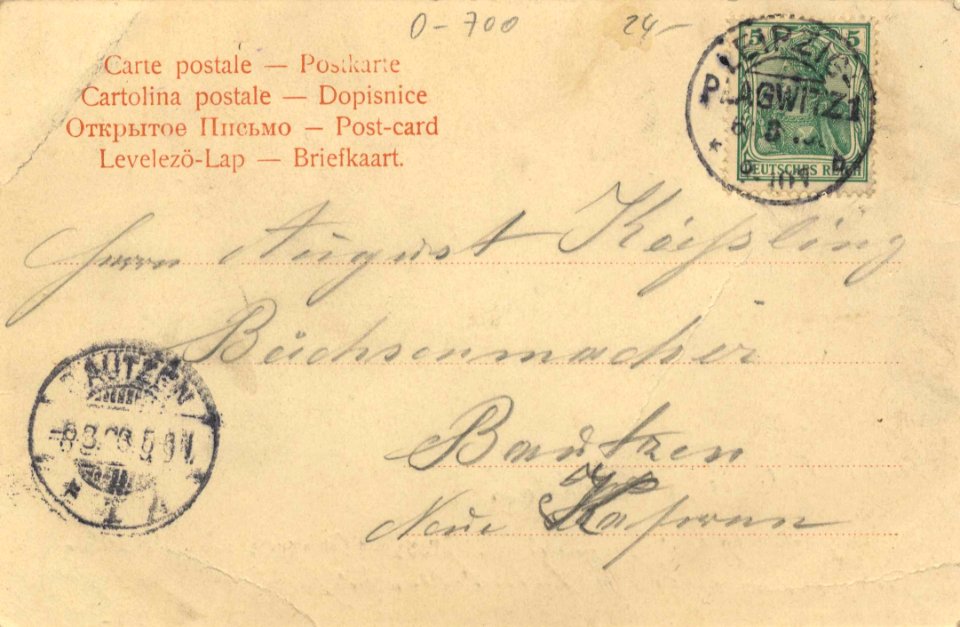 0-700 24-
Carte postale — Postkarte
Cartolina postale — Dopisnice
Открытое Письмо — Post-card
Levelező-Lap — Briefkaart.
5 5
LEIPZIG-
PLAGWITZ 1
DEUTSCHES REICH
Herrn August Kießling
Büchsenmacher
Bautzen
Neue Kasernen
BAUTZEN